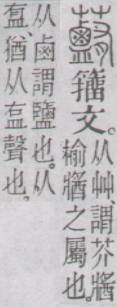 籒文。
从艸、謂芥牆
榆牆之屬也。
从鹵謂鹽也。从
𥁓、猶从𥁓聲也。